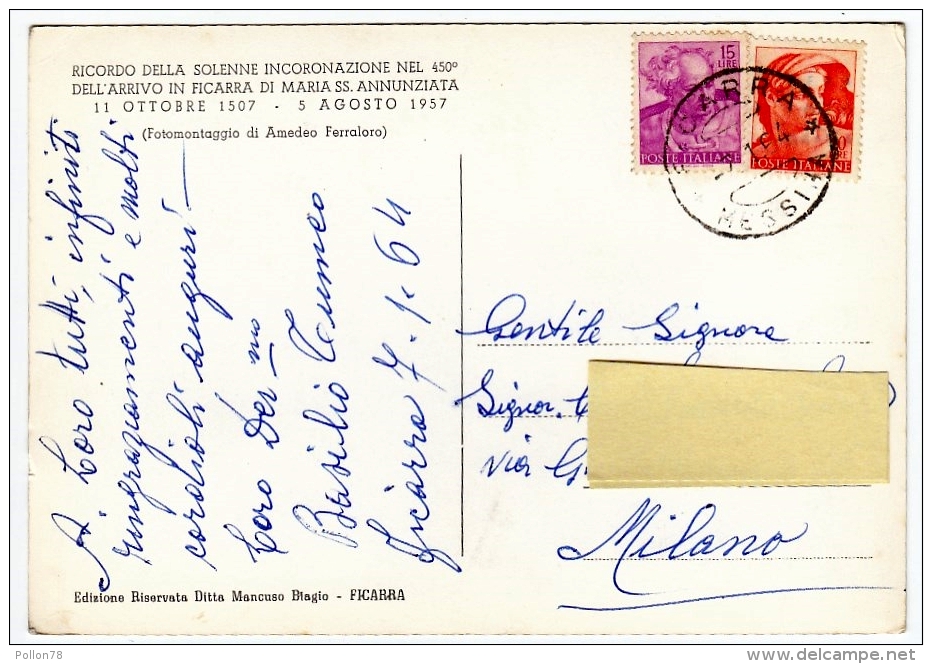 RICORDO DELLA SOLENNE INCORONAZIONE NEL 450º
DELL'ARRIVO IN FICARRA DI MARIA SS. ANNUNZIATA
11 OTTOBRE 1507 - 5 AGOSTO 1957
(Fotomontaggio di Amedeo Ferraloro)
A Loro tutti, infiniti
ringraziamenti e molti
cordiali auguri —
Loro Dev-mo
Basilio
Ficarra 7.1.64
Edizione Riservata Ditta Mancuso Biagio - FICARRA
15
LIRE
POSTE ITALIANE
POSTE ITALIANE
MESSINA
Gentile Signora
Signor.
Via
Milano
Pollon78
www.delcampe.net